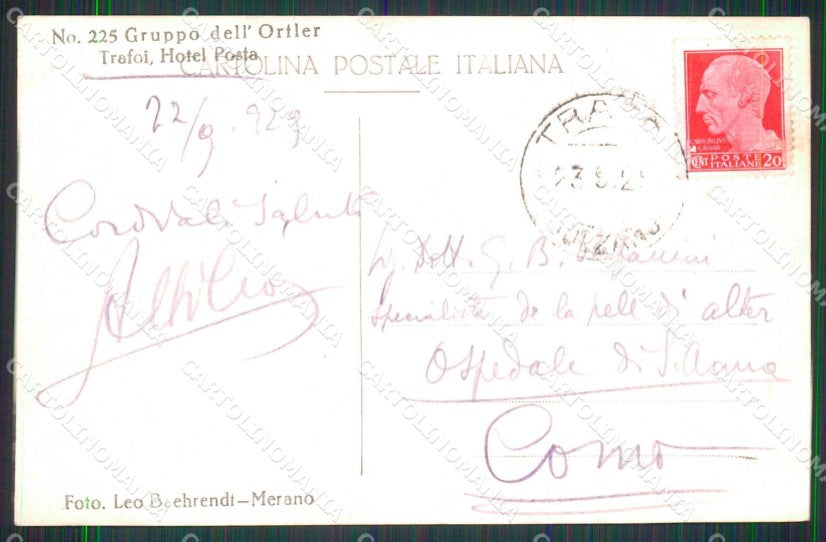 No. 225 Gruppo dell' Ortler
Trafoi, Hotel Posta
CARTOLINA POSTALE ITALIANA
22/9. 929
Cordiali Saluti
TRAFOI
23. 9. 29
BOLZANO
CAIVS IVLIVS
CAESAR
CENT POSTE ITALIANE 20
Dott. G. B.
Specialista de la pele di alter
Ospedale di S. Anna
Como
Foto. Leo Baehrendt-Merano
CARTOLINOMANIA